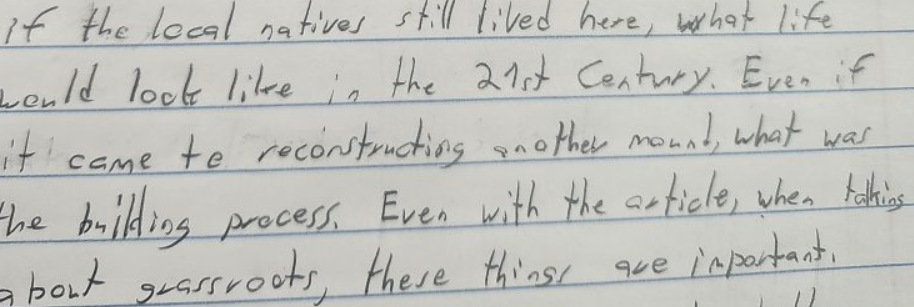 if the local natives still lived here, what life
would look like in the 21st Century. Even if
it came to reconstructing another mound, what was
the building process. Even with the article, when talking
about grassroots, these things are important.